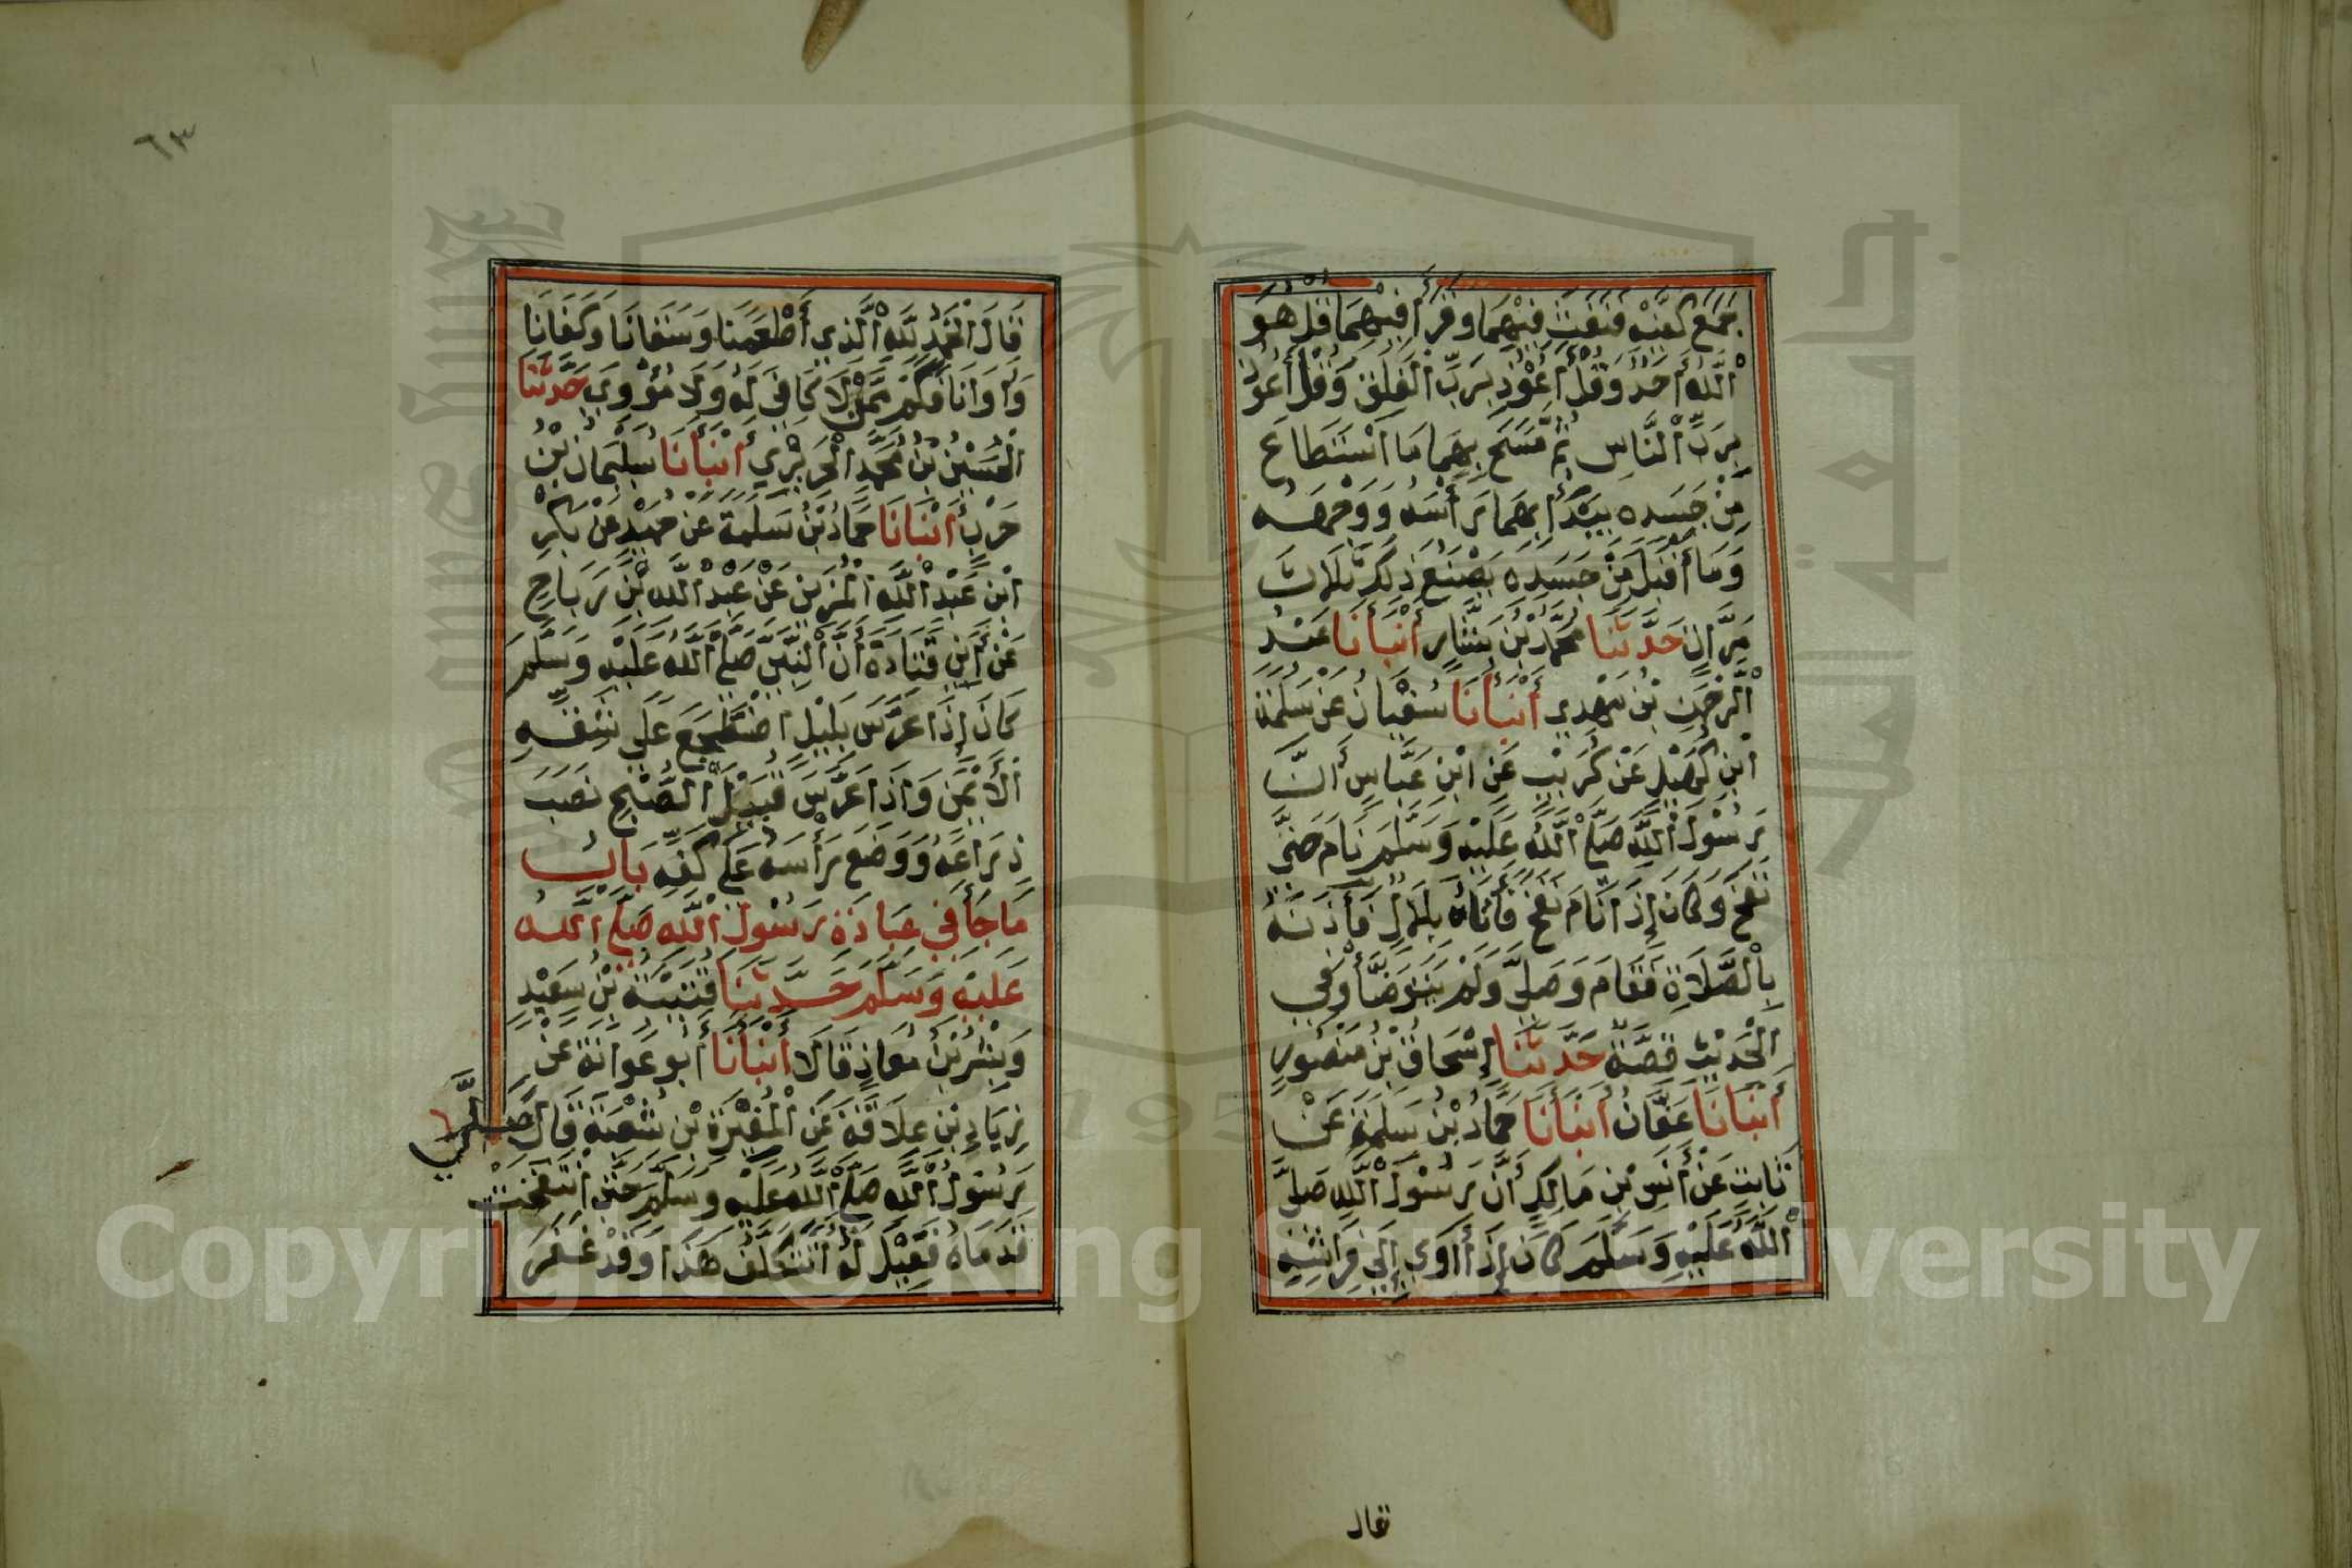 جَمَعَ كَفَّيْهِ فَنَفَثَ فِيْهِمَا وَقَرَأَ فِيْهِمَا قُلْ هُوَ
اللَّهُ أَحَدٌ وَقُلْ أَعُوْذُ بِرَبِّ الْفَلَقِ وَقُلْ أَعُوْذُ
بِرَبِّ النَّاسِ ثُمَّ مَسَحَ بِهِمَا مَا اسْتَطَاعَ
مِنْ جَسَدِهِ يَبْدَأُ بِهِمَا رَأْسَهُ وَوَجْهَهُ
وَمَا أَقْبَلَ مِنْ جَسَدِهِ يَصْنَعُ ذَلِكَ ثَلَاثَ
مَرَّاتٍ حَدَّثَنَا مُحَمَّدُ بْنُ بَشَّارٍ أَنْبَأَنَا عَبْدُ
الرَّحْمَنِ بْنُ مَهْدِي أَنْبَأَنَا سُفْيَانُ عَنْ سَلَمَةَ
ابْنِ كُهَيْلٍ عَنْ كُرَيْبٍ عَنِ ابْنِ عَبَّاسٍ أَنَّ
رَسُوْلَ اللَّهِ صَلَّى اللَّهُ عَلَيْهِ وَسَلَّمَ نَامَ حَتَّى
نَفَخَ وَكَانَ إِذَا نَامَ نَفَخَ فَأَتَاهُ بِلَالٌ فَأَذَنَهُ
بِالصَّلَاةِ فَقَامَ وَصَلَّى وَلَمْ يَتَوَضَّأْ وَفِي
الْحَدِيْثِ قِصَّةٌ حَدَّثَنَا إِسْحَاقُ بْنُ مَنْصُورٍ
أَنْبَأَنَا عَفَّانُ أَنْبَأَنَا حَمَّادُ بْنُ سَلَمَةَ عَنْ
ثَابِتٍ عَنْ أَنَسِ بْنِ مَالِكٍ أَنَّ رَسُوْلَ اللَّهِ صَلَّى
اللَّهُ عَلَيْهِ وَسَلَّمَ كَانَ إِذَا أَوَى إِلَى فِرَاشِهِ
قال
٦٣
قَالَ الْحَمْدُ لِلَّهِ الَّذِي أَطْعَمَنَا وَسَقَانَا وَكَفَانَا
وَأَوَانَا فَكَمْ مِمَّنْ لَا كَافِيَ لَهُ وَلَا مُؤْوِيَ حَدَّثَنَا
الْحُسَيْنُ بْنُ مُحَمَّدٍ الْحَرِيْرِي أَنْبَأَنَا سُلَيْمَانُ بْنُ
حَرْبٍ أَنْبَأَنَا حَمَّادُ بْنُ سَلَمَةَ عَنْ حُمَيْدٍ عَنْ بَكْرِ
ابْنِ عَبْدِ اللَّهِ الْمُزَنِيِّ عَنْ عَبْدِ اللَّهِ بْنِ رَبَاحٍ
عَنْ أَبِي قَتَادَةَ أَنَّ النَّبِيَّ صَلَّى اللَّهُ عَلَيْهِ وَسَلَّمَ
كَانَ إِذَا عَرَّسَ بِلَيْلٍ اضْطَجَعَ عَلَى شِقِّهِ
الْأَيْمَنِ وَإِذَا عَرَّسَ قُبَيْلَ الصُّبْحِ نَصَبَ
ذِرَاعَهُ وَوَضَعَ رَأْسَهُ عَلَى كَفِّهِ بَابُ
مَا جَاءَ فِي عِبَادَةِ رَسُوْلِ اللَّهِ صَلَّى اللَّهُ
عَلَيْهِ وَسَلَّمَ حَدَّثَنَا قُتَيْبَةُ بْنُ سَعِيْدٍ
وَبِشْرُ بْنُ مُعَاذٍ قَالَا أَنْبَأَنَا أَبُو عَوَانَةَ عَنْ
زِيَادِ بْنِ عِلَاقَةَ عَنِ الْمُغِيْرَةِ بْنِ شُعْبَةَ قَالَ صَلَّى
رَسُوْلُ اللَّهِ صَلَّى اللَّهُ عَلَيْهِ وَسَلَّمَ حَتَّى انْتَفَخَتْ
قَدَمَاهُ فَقِيْلَ لَهُ أَتَتَكَلَّفُ هَذَا وَقَدْ غَفَرَ
Copyright © King Saud University
1957